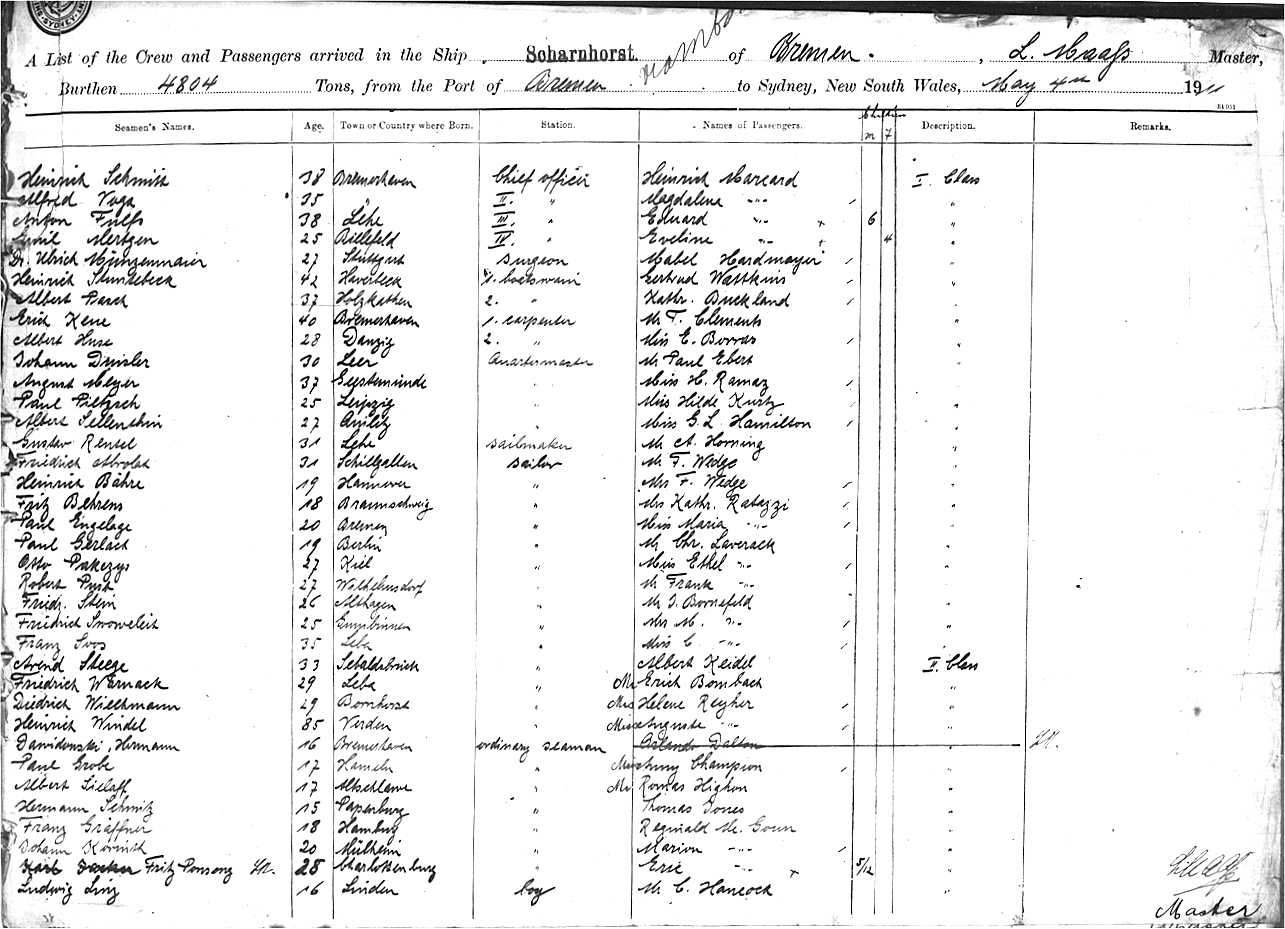 A List of the Crew and Passengers arrived in the Ship Scharnhorst. of Bremen. , L. Maass Master,
Burthen 4804 Tons, from the Port of Bremen to Sydney, New South Wales, May 4th 1911
Seamen's Names. Age. Town or Country where Born. Station. Names of Passengers. Children m f Description. Remarks.
Heinrich Schmitt 38 Bremerhaven Chief officer Heinrich Marcard I. Class
Alfred Voga 35 " II. " Magdalena -"- "
Anton Fulfs 38 Lehe III. " Eduard -"- + 6 "
Emil Mertgen 25 Bielefeld IV. " Eveline -"- + 4 "
Dr. Ulrich Münzenmaier 27 Stuttgart Surgeon Mabel Hardmayer "
Heinrich Stuntebeck 42 Haverbeck 1. boatswain Gertrud Wattkins "
Albert Pasch 37 Holzkathen 2. " Kathr. Buckland "
Erich Kene 40 Bremerhaven 1. carpenter Mr T. Clements "
Albert Huse 28 Danzig 2. " Miss E. Borras "
Johann Duisler 30 Leer Quartermaster Mr Paul Ebert "
August Meyer 37 Geestemünde " Miss H. Ramaz "
Paul Pietzsch 25 Leipzig " Miss Hilde Kurtz "
Albert Sellenthin 27 " Miss G. L. Hamilton "
Gustav Rensel 31 Lehe sailmaker Mr A. Horning "
Friedrich 31 Schillgallen sailor Mr F. Wedge "
Heinrich Bähre 19 Hannover " Mrs F. Wedge "
Fritz Behrens 18 Braunschweig " Mrs Kathr. Ratazzi "
Paul Engelage 20 Bremen " Miss Maria -"- "
Paul Gerlach 19 Berlin " Mr Chr. Laverack "
Otto Pakczys 27 Kiel " Miss Ethel -"- "
Robert Pust 27 Wilhelmsdorf " Mr Frank -"- "
Friedr. Stein 26 Althagen " Mr J. Bornefeld "
Friedrich Snoweleit 25 Gumbinnen " Mrs M. -"- "
Franz Svos 35 Leba " Miss C. -"- "
Arend Steege 33 Sebaldsbrück " Albert Keidel II. Class
Friedrich Warnack 29 Leba " Mr Erich Bombach "
Diedrich Wiechmann 29 Bornhorst " Mrs Helene Reyher "
Heinrich Windel 85 Verden " Miss Auguste -"- "
Dawidowski, Hermann 16 Bremerhaven ordinary seaman Orlando Dalton "
Paul Grobe 17 Hameln " Champion "
Albert Sielaff 17 Altschlawe " Mr Romas Highon "
Hermann Schmitz 15 Papenburg " Thomas Jones "
Franz Gräffner 18 Hamburg " Reginald Mc. Goun "
Johann Körnith 20 Mülheim " Marion -"- "
Karl Fritz Ponsong 28 Charlottenburg " Eric -"- + 5/12 "
Ludwig Linz 16 Linden boy Mr C. Hancock "
Master